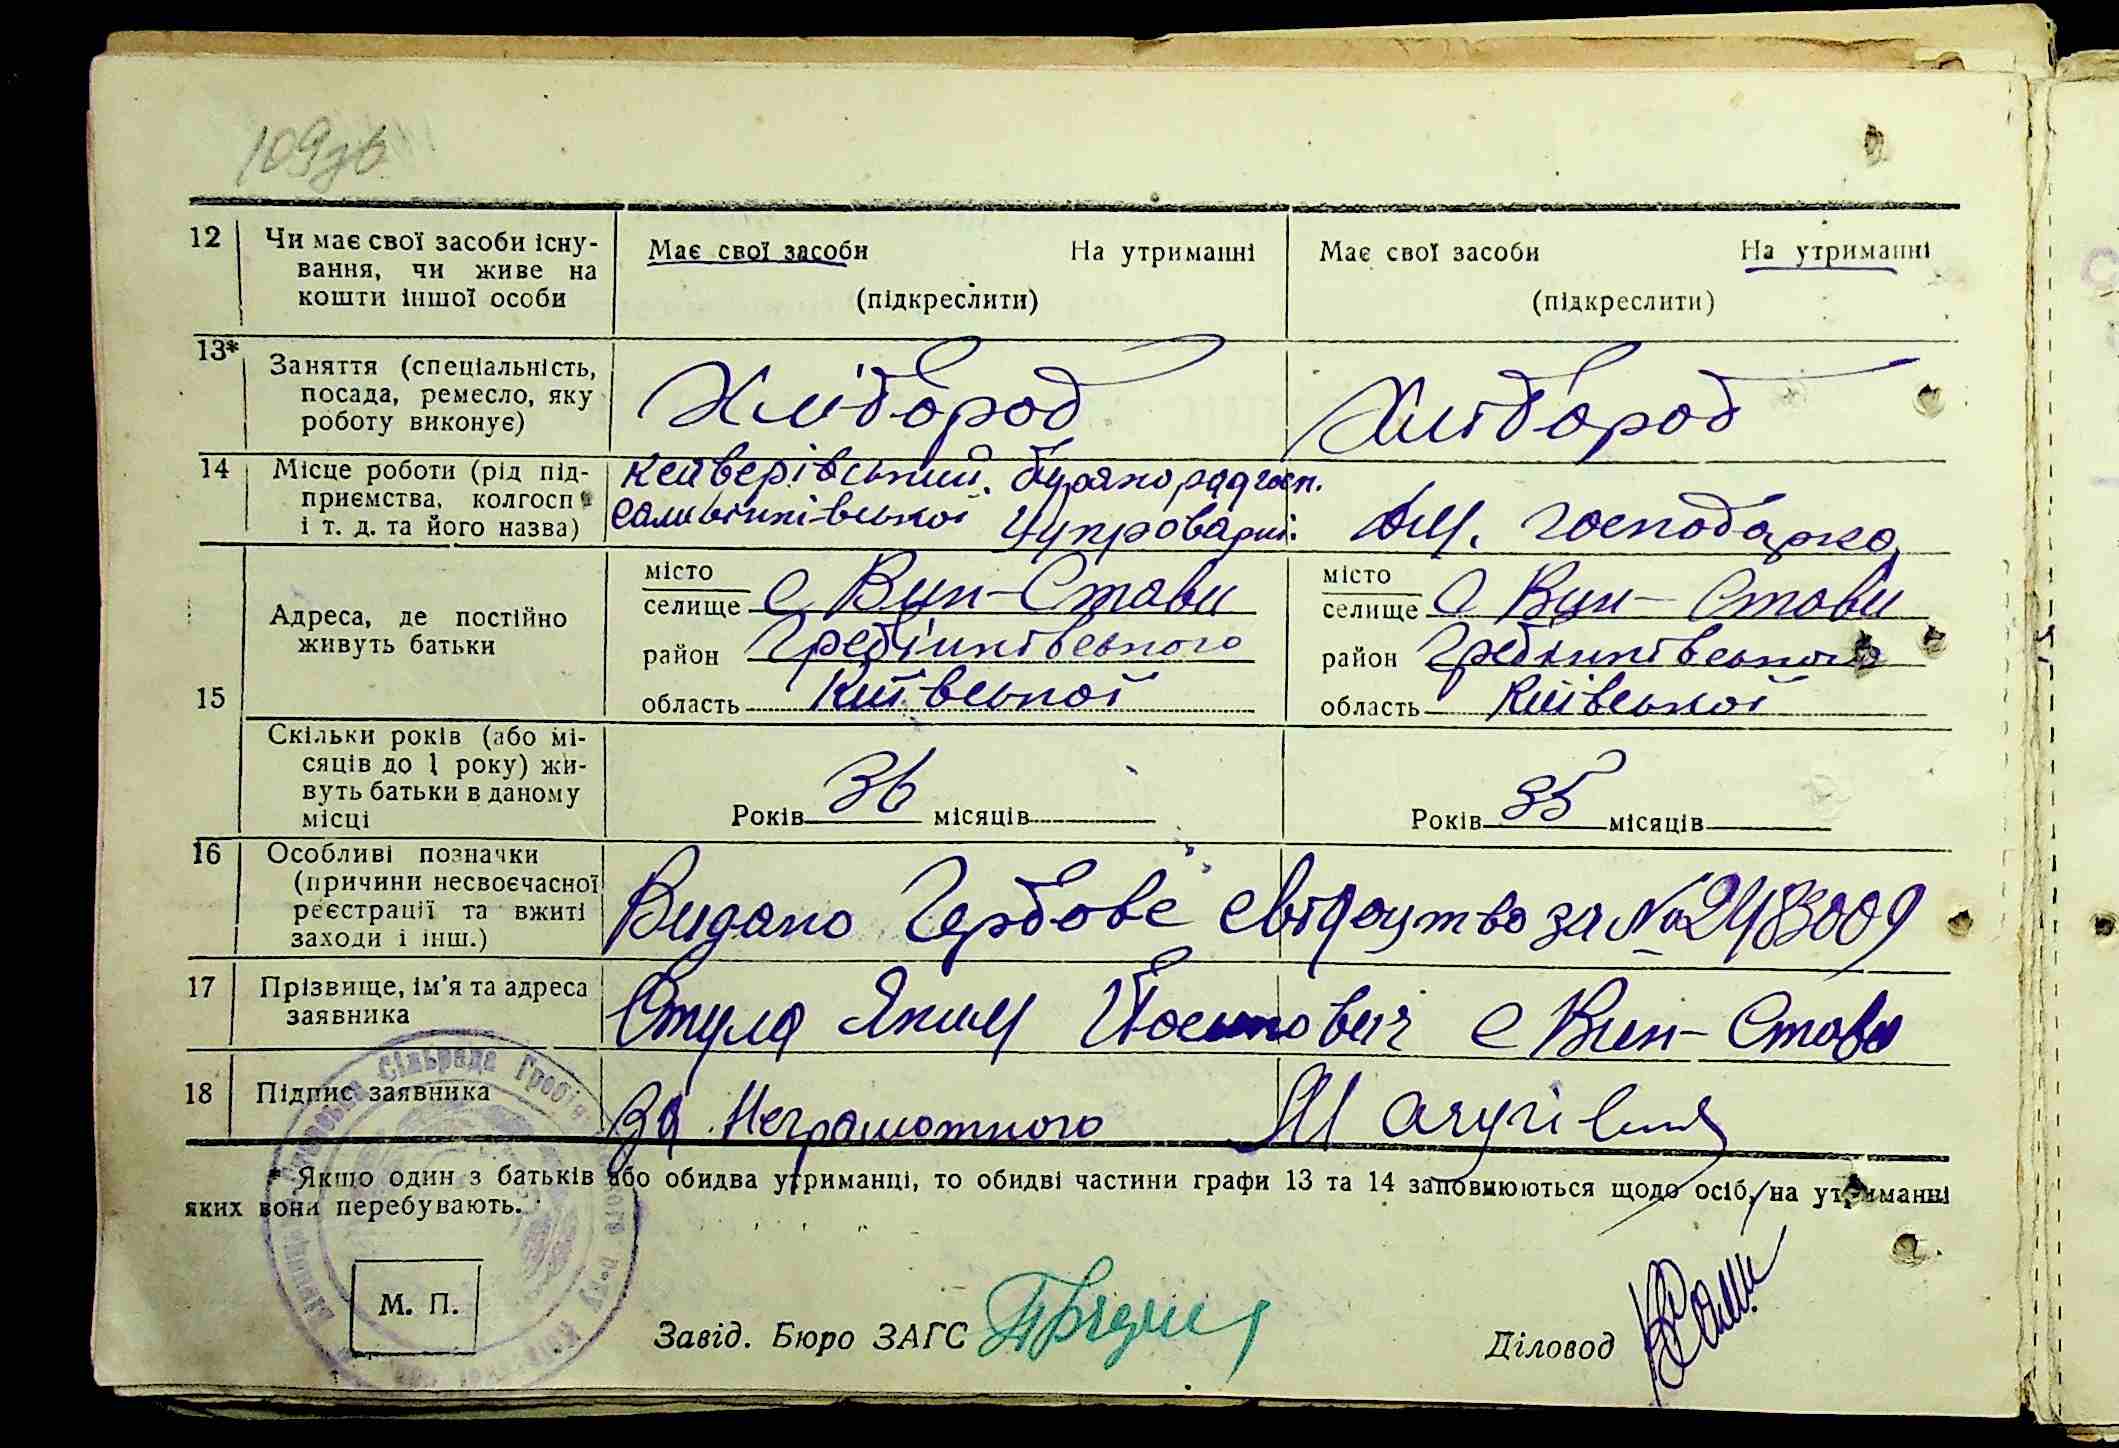 109зв
12 Чи має свої засоби існу-
вання, чи живе на
кошти іншої особи
Має свої засоби На утриманні
(підкреслити)
Має свої засоби На утриманні
(підкреслити)
13* Заняття (спеціальність,
посада, ремесло, яку
роботу виконує)
Хлібороб
Хлібороб
14 Місце роботи (рід під-
приємства, колгосп
і т. д. та його назва)
бурякорадгосп.
цукроварні.
дом. господарка
15 Адреса, де постійно
живуть батьки
місто
селище с Вин-Стави
район Гребінківського
область Київської
місто
селище с Вин-Стави
район Гребінківського
область Київської
Скільки років (або мі-
сяців до 1 року) жи-
вуть батьки в даному
місці
Років 36 місяців
Років 35 місяців
16 Особливі позначки
(причини несвоєчасної
реєстрації та вжиті
заходи і інш.)
Видано Гербове свідоцтво за № 2483009
17 Прізвище, ім'я та адреса
заявника
Стула Яким Йосипович с Вин-Стави
18 Підпис заявника
За Неграмотного
* Якщо один з батьків або обидва утриманці, то обидві частини графи 13 та 14 заповнюються щодо осіб, на утриманні
яких вони перебувають.
Сільрада
М. П.
Завід. Бюро ЗАГС
Діловод